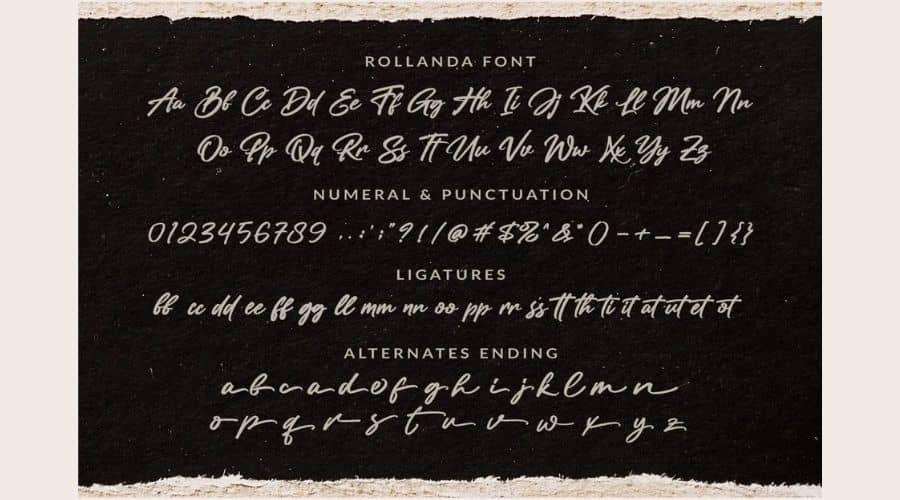 ROLLANDA FONT
Aa Bb Cc Dd Ee Ff Gg Hh Ii Jj Kk Ll Mm Nn
Oo Pp Qq Rr Ss Tt Uu Vv Ww Xx Yy Zz
NUMERAL & PUNCTUATION
0123456789 ,.:';"?!//@#$%^&*()-+_=[]{}
LIGATURES
bb cc dd ee ff gg ll mm nn oo pp rr ss tt th ti it at ut et ot
ALTERNATES ENDING
a b c a d e f g h i j k l m n
o p q r s t u v w x y z